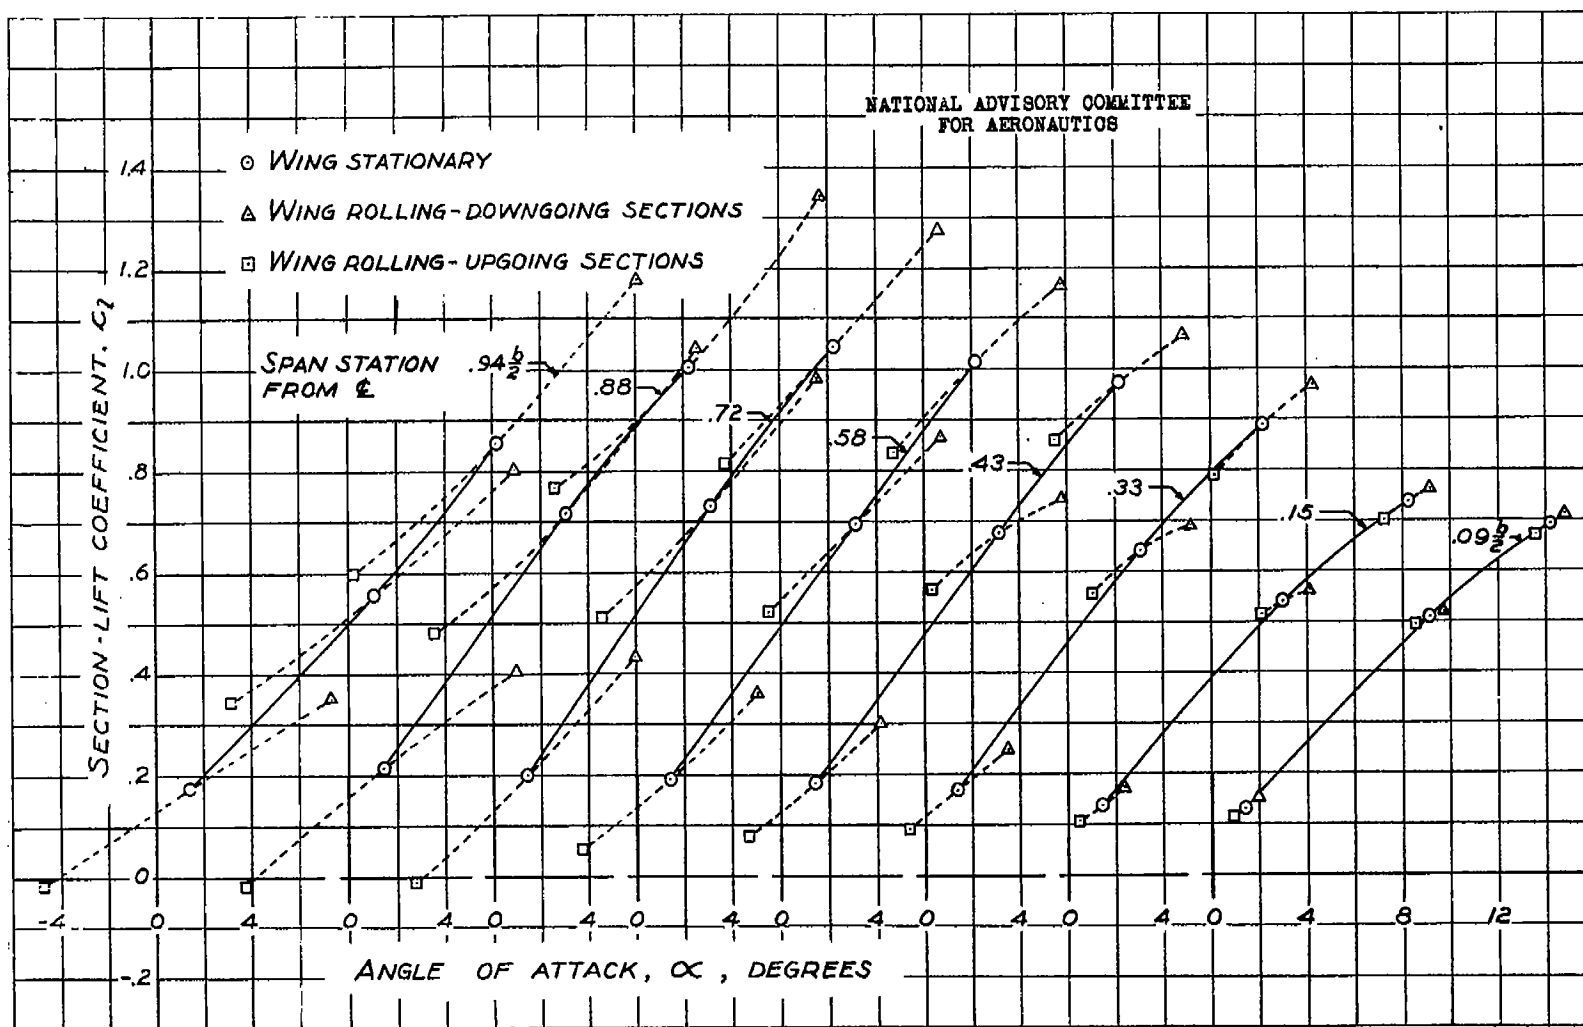 NATIONAL ADVISORY COMMITTEE
FOR AERONAUTICS
⊙ WING STATIONARY
WING ROLLING-DOWNGOING SECTIONS
WING ROLLING-UPGOING SECTIONS
SPAN STATION
FROM ℄
.94 b/2
.88
.72
.58
.43
.33
.15
.09 b/2
SECTION-LIFT COEFFICIENT, cl
1.4
1.2
1.0
.8
.6
.4
.2
0
-.2
-4 0 4 0 4 0 4 0 4 0 4 0 4 0 4 8 12
ANGLE OF ATTACK, ∝, DEGREES